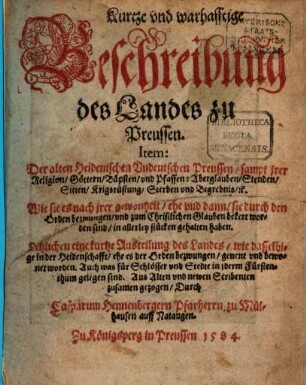 Kurtze vnd warhafftige
Beschreibung
des Landes zu
Preussen.
Item:
Der alten Heidenischen Vndeutschen Preussen / sampt jrer
Religion / Göttern / Bäpsten / vnd Pfaffen: Aberglauben / Stenden /
Sitten / Krigsrüstung / Sterben vnd Begrebnis / ꝛc.
Wie sie es nach jrer gewonheit / ehe vnd dann / sie durch den
Orden bezwungen / vnd zum Christlichen Glauben bekert wor-
den sind / in allerley stücken gehalten haben.
Letzlichen eine kurtze Austeilung des Landes / wie dasselbi-
ge in der Heidenschafft / ehe es der Orden bezwungen / genent vnd bewo-
net worden. Auch was für Schlösser vnd Stedte in jderm Fürsten-
thum gelegen sind. Aus Alten vnd newen Scribenten
zusamen gezogen / Durch
Casparum Hennenbergern Pfarherrn / zu Mül-
hausen auff Natangen.
Zu Königsperg in Preussen 1584.
BIBLIOTHECA
REGIA
MONACENSIS.